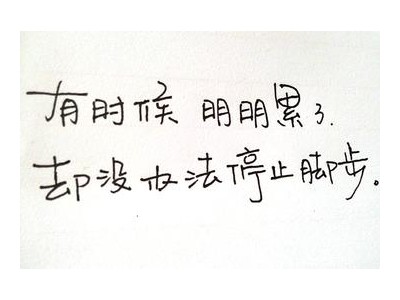 有时候 明明累了.
却没办法停止脚步。